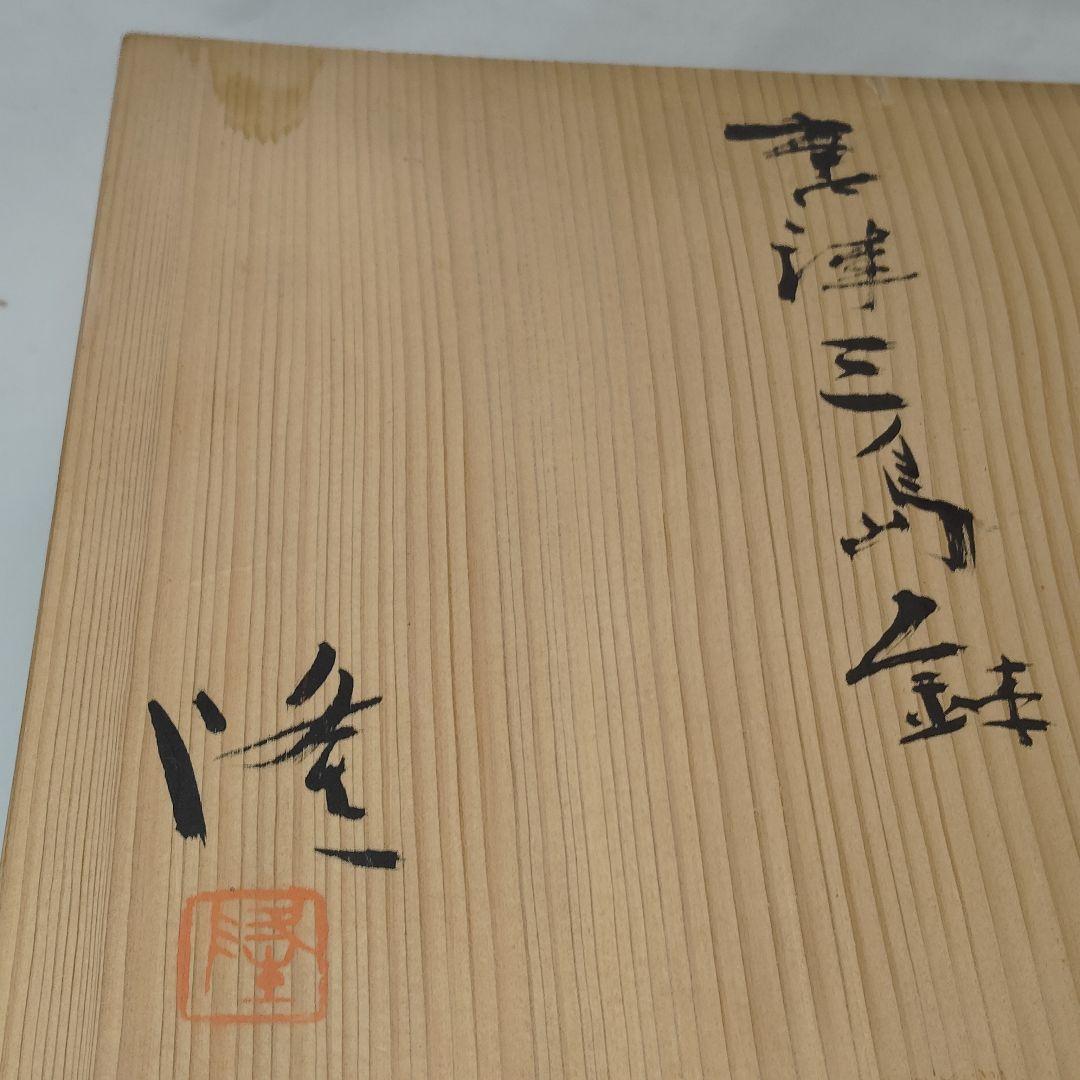 唐津三島鉢
隆
隆